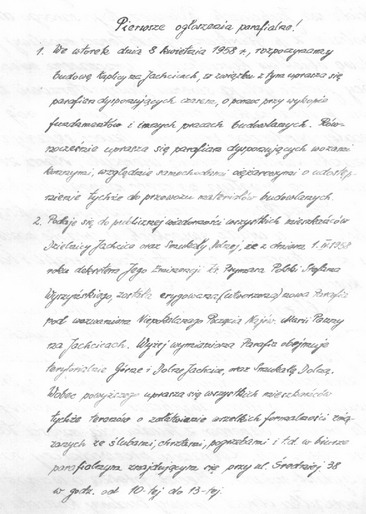 Pierwsze ogłoszenia parafialne!
1. We wtorek dnia 8 kwietnia 1958 r., rozpoczynamy
budowę kaplicy na Jachcicach, w związku z tym uprasza się
parafian dysponujących czasem, o pomoc przy wykopie
fundamentów i innych pracach budowlanych. Rów-
nocześnie uprasza się parafian dysponujących wozami
konnymi, względnie samochodami ciężarowymi o udostęp-
nienie tychże do przewozu materiałów budowlanych.
2. Podaje się do publicznej wiadomości wszystkich mieszkańców
dzielnicy Jachcice oraz Smukały Dolnej, że z dniem 1. 1958
roku dekretem Jego Eminencji Ks. Prymasa Polski Stefana
Wyszyńskiego, została erygowana (utworzona) nowa Parafia
pod wezwaniem Niepokalanego Poczęcia Najśw. Marii Panny
na Jachcicach. Wyżej wymieniona Parafia obejmuje
terytorialnie Górne i Dolne Jachcice, oraz Smukałę Dolną.
Wobec powyższego uprasza się wszystkich mieszkańców
tychże terenów o załatwienie wszelkich formalności zwią-
zanych ze ślubami, chrztami, pogrzebami i t.d. w biurze
parafialnym znajdującym się przy ul. Średniej 38
w godz. od 10-tej do 13-tej.